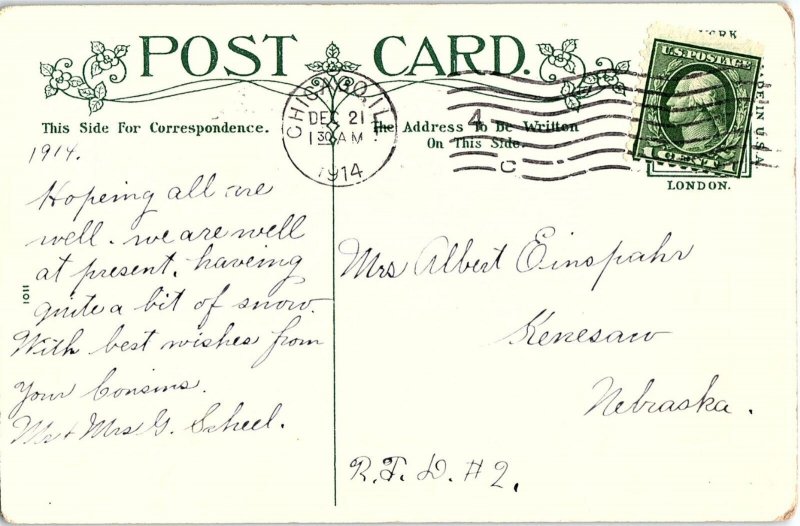 POST CARD.
This Side For Correspondence.
The Address To be Written
On This Side.
CHICAGO, ILL.
DEC 21
1 30 AM
1914
4
C
YORK
U.S. POSTAGE
MADE IN U.S.A.
LONDON.
1914.
Hopeing all are
well. we are well
at present, haveing
quite a bit of snow.
With best wishes from
Your Cousins.
Mr + Mrs G. Scheel.
1011
Mrs Albert Einspahr
Kenesaw
Nebraska.
R.F.D. #2.